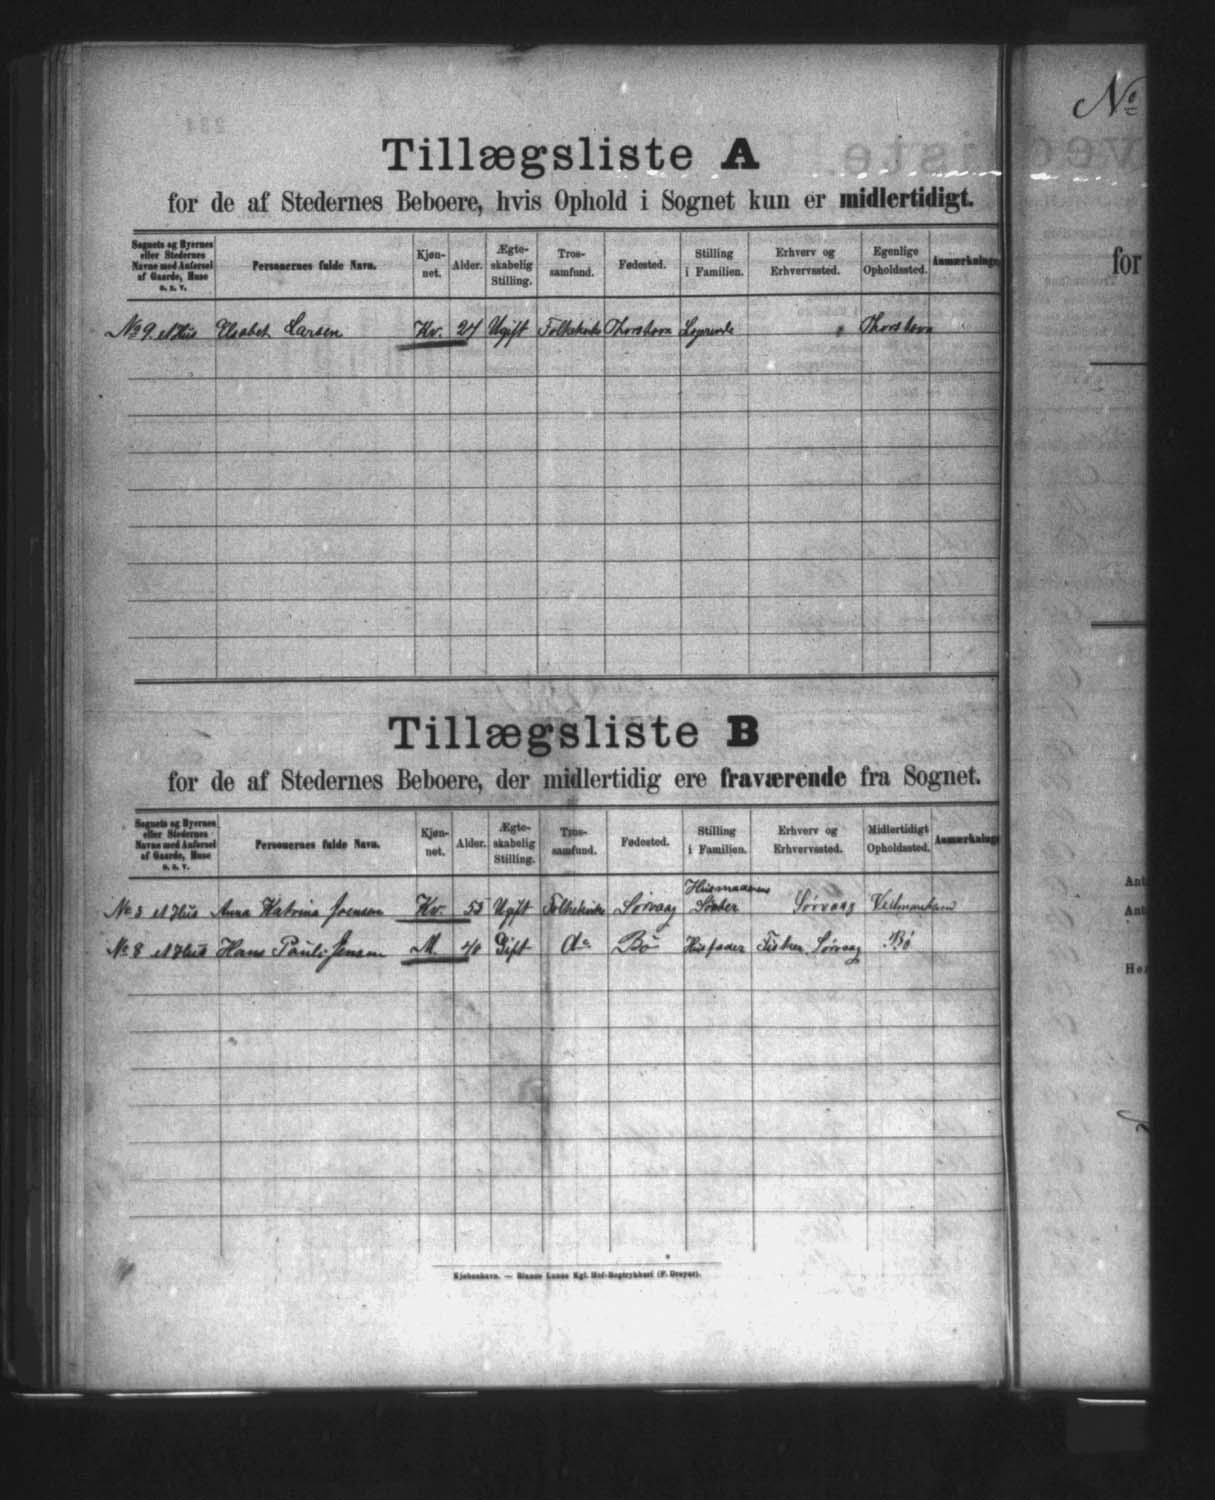 Tillægsliste A
for de af Stedernes Beboere, hvis Ophold i Sognet kun er midlertidigt.
Sognets og Byernes eller Stedernes Navne med Anførsel af Gaarde, Huse o. s. v. Personernes fulde Navn. Kjøn-net. Alder. Ægte-skabelig Stilling. Tros-samfund. Fødested. Stilling i Familien. Erhverv og Erhvervssted. Egenlige Opholdssted. Anmærkninge
No 9. et Hus Elsabet Larsen Kv. 24 Ugift Folkekirke Thorshavn Logerende " Thorshavn
Tillægsliste B
for de af Stedernes Beboere, der midlertidig ere fraværende fra Sognet.
Sognets og Byernes eller Stedernes Navne med Anførsel af Gaarde, Huse o. s. v. Personernes fulde Navn. Kjøn-net. Alder. Ægte-skabelig Stilling. Tros-samfund. Fødested. Stilling i Familien. Erhverv og Erhvervssted. Midlertidigt Opholdssted. Anmærkninge
No 5 et Hus Anna Katrina Joensen Kv. 53 Ugift Folkekirke Sørvaag Husmoderens Søster Sørvaag Vestmanhavn
No 8 et Hus Hans Pauli Jensen M. 40 Gift do Bö Husfader Fisker, Sørvaag Bö
Kjøbenhavn. — Bianco Lunos Kgl. Hof-Bogtrykkeri (F. Dreyer).
No
for
Ant
Ant